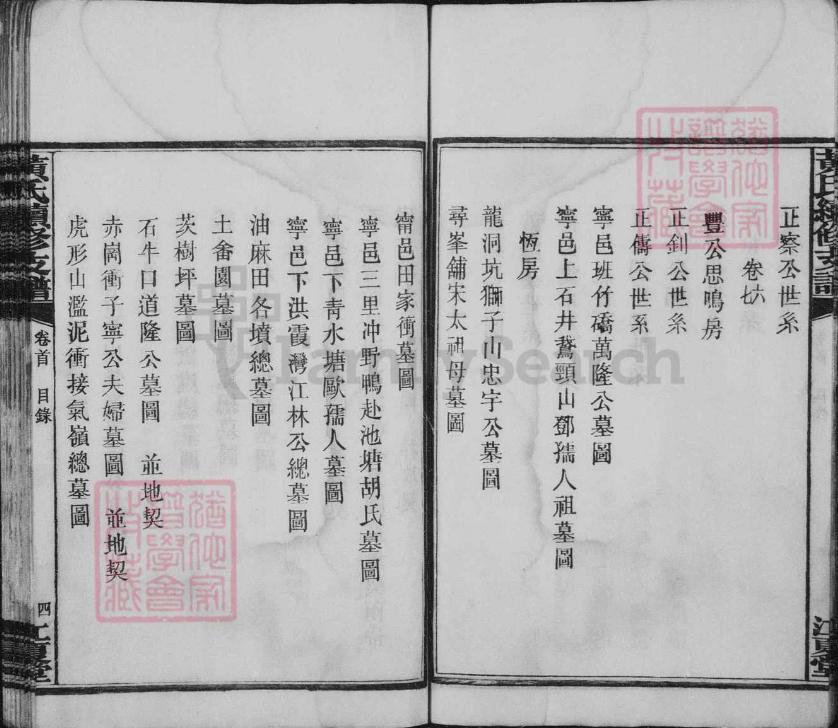 正察公世系
卷七六
豐公思鳴房
正釗公世系
正儔公世系
寧邑班竹礄萬隆公墓圖
寧邑上石井鵞頸山鄧孺人祖墓圖
恆房
龍洞坑獅子山忠宇公墓圖
尋峯舖宋太祖母墓圖
甯邑田家衝墓圖
寧邑三里冲野鴨赴池塘胡氏墓圖
寧邑下靑水塘歐孺人墓圖
寧邑下洪霞灣江林公總墓圖
油麻田各墳總墓圖
土畬園墓圖
茨樹坪墓圖
石牛口道隆公墓圖 並地契
赤崗衝子寧公夫婦墓圖 並地契
虎形山濫泥衝接氣嶺總墓圖
黃氏續修支譜
卷首 目錄
四
江夏堂
黃氏續修支譜
江夏堂
FamilySearch